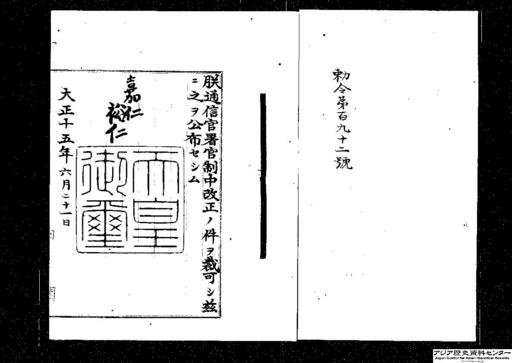 勅令第百九十二號
朕通信官署官制中改正ノ件ヲ裁可シ茲
ニ之ヲ公布セシム
嘉仁
裕仁
天皇
御璽
大正十五年六月二十一日
アジア歴史資料センター
Japan Center for Asian Historical Records